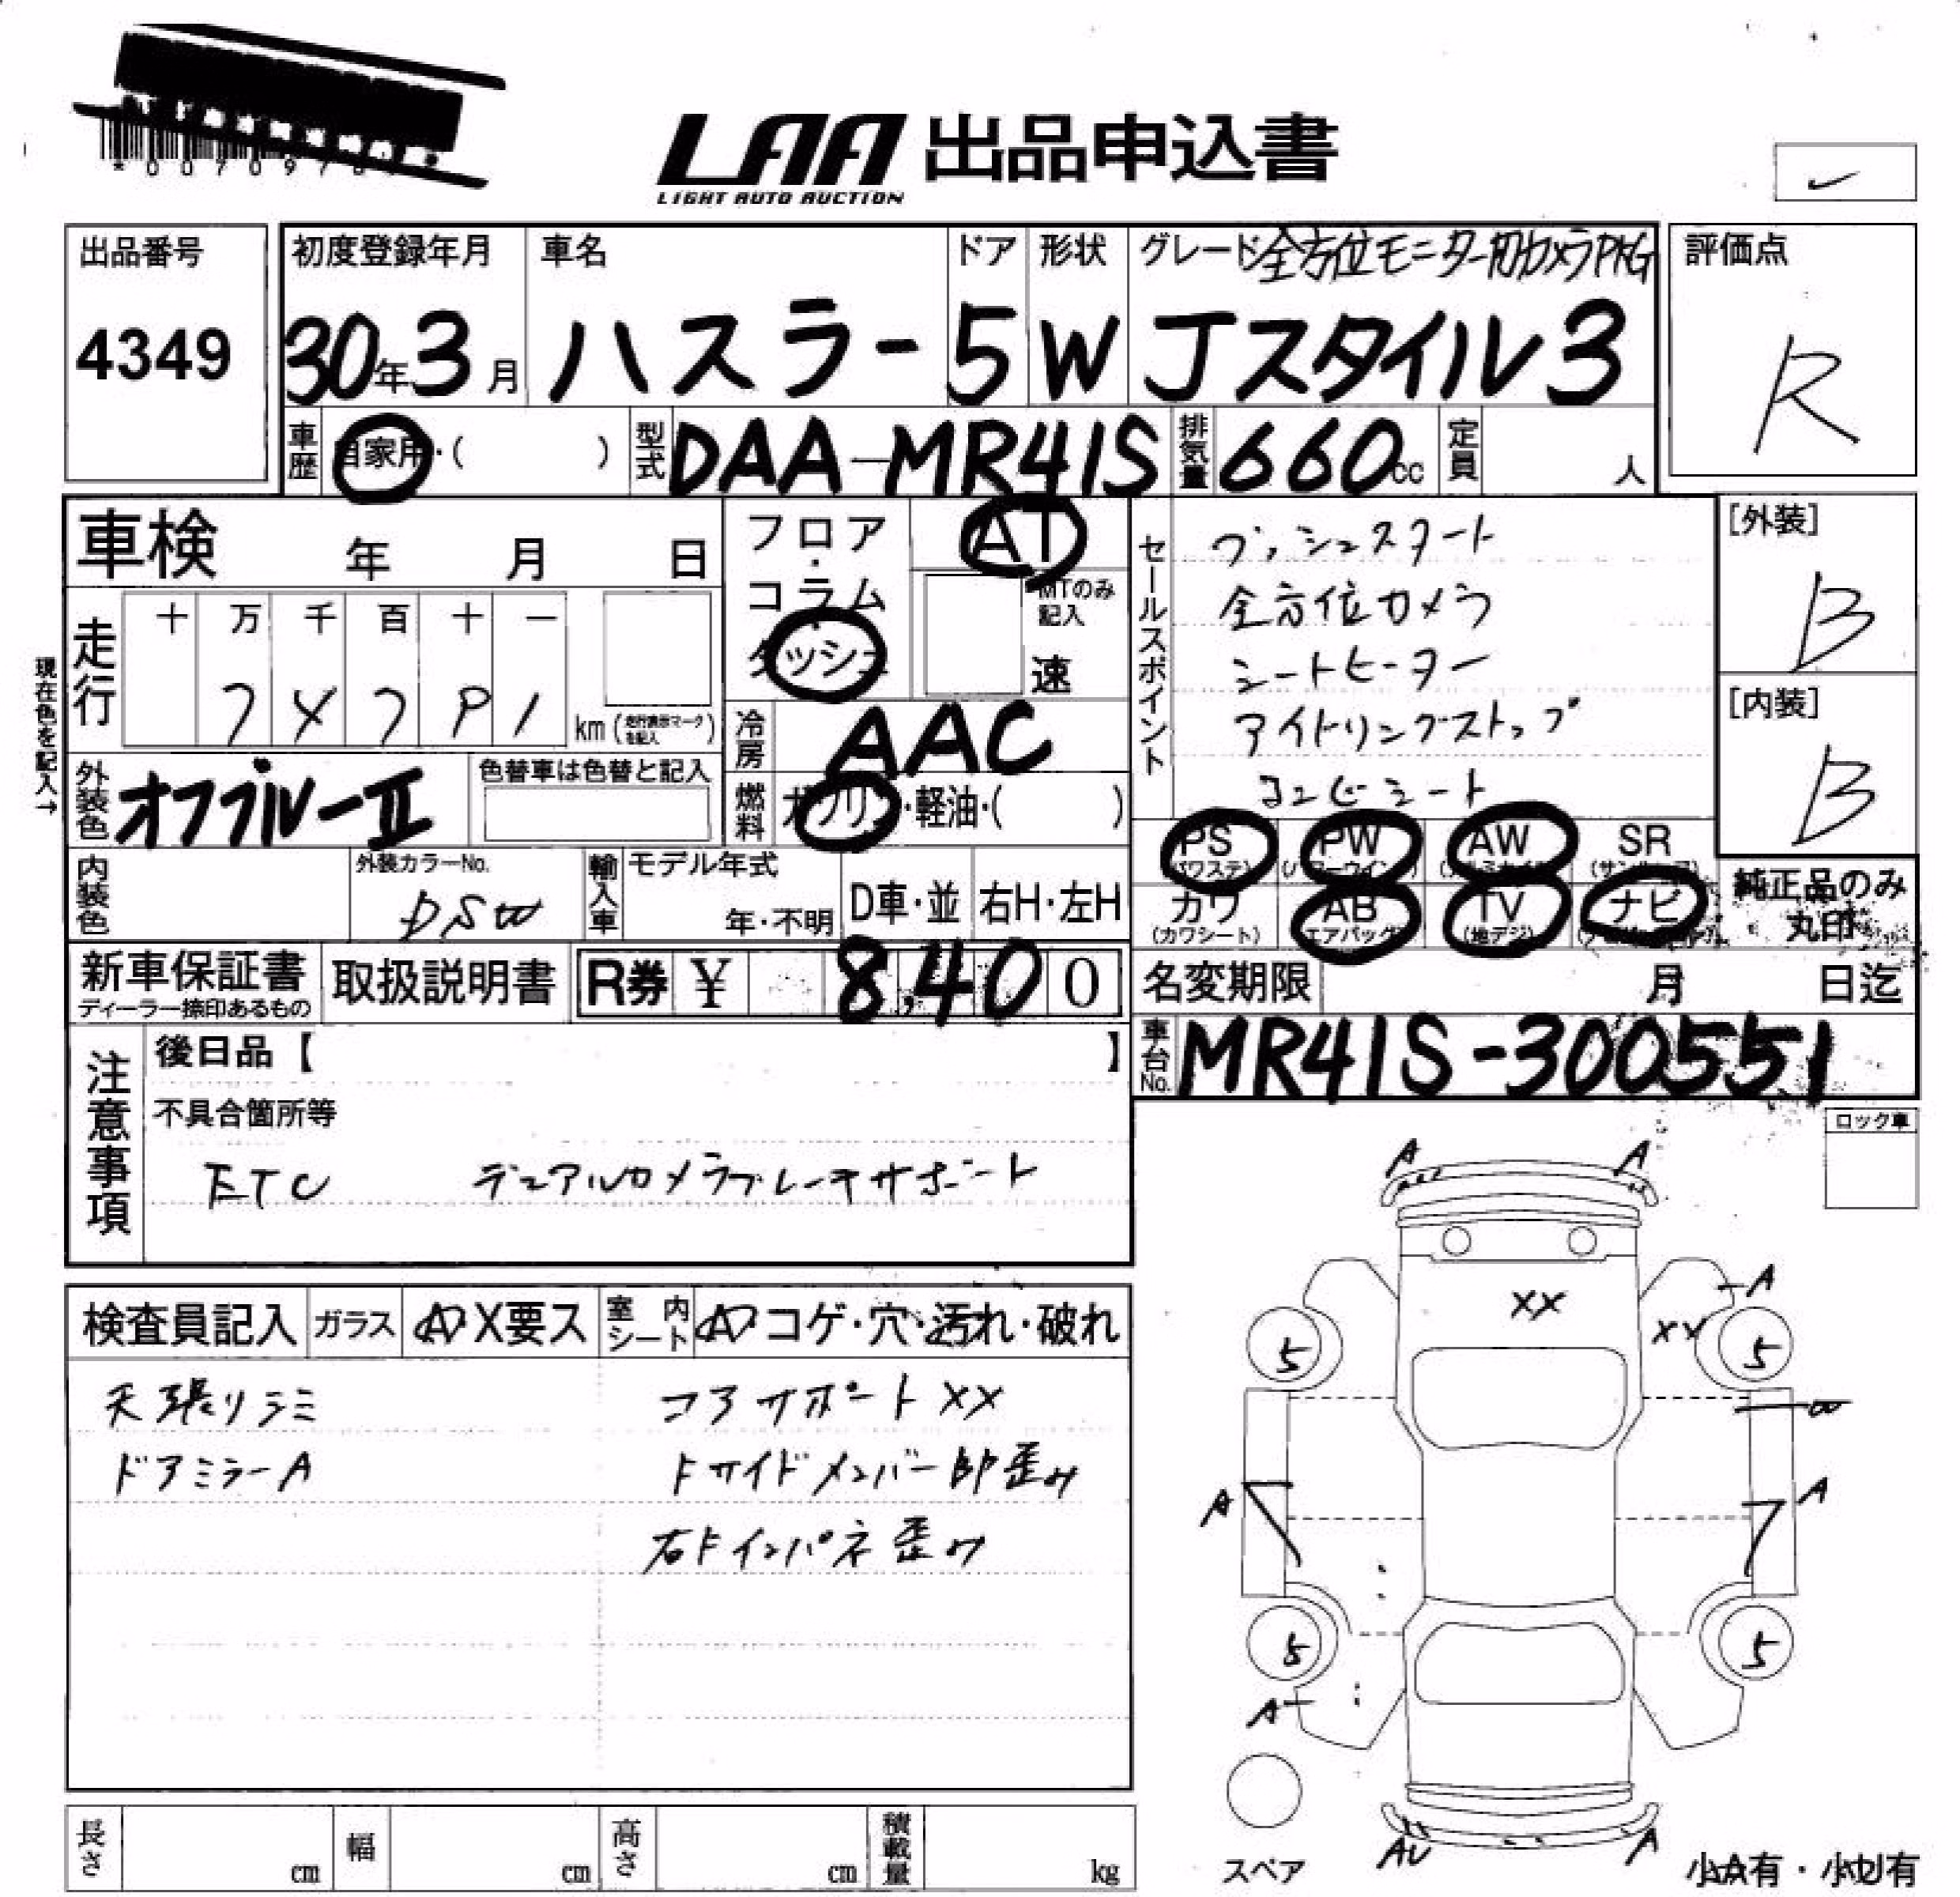 LAA 出品申込書
LIGHT AUTO AUCTION
出品番号
4349
初度登録年月
30年3月
車名
ハスラー
ドア
5
形状
W
グレード 全方位モニター用カメラPKG
Jスタイル3
評価点
R
車歴 自家用・( )
型式 DAA-MR41S
排気量 660cc
定員 人
車検 年 月 日
フロア・コラム・ダッシュ
AT
MTのみ記入
速
セールスポイント
プッシュスタート
全方位カメラ
シートヒーター
アイドリングストップ
コンビシート
[外装]
B
[内装]
B
現在色を記入→
走行
十 万 千 百 十 一
km (走行表示マークを記入)
冷房 AAC
外装色 オフブルーⅡ
色替車は色替と記入
燃料 ガソリン・軽油・( )
PS (パワステ)
PW (パワーウインド)
AW (アルミホイル)
SR (サンルーフ)
カワ (カワシート)
AB (エアバッグ)
TV (地デジ)
ナビ
純正品のみ丸印
内装色
外装カラーNo.
DSW
輸入車
モデル年式
年・不明
D車・並
右H・左H
新車保証書
ディーラー捺印あるもの
取扱説明書
R券 ¥ 8,400
名変期限 月 日迄
車台No. MR41S-300551
注意事項
後日品【 】
不具合箇所等
ETC デュアルカメラブレーキサポート
ロック車
検査員記入
ガラス A X要ス
室内シート A コゲ・穴・汚れ・破れ
天張りシミ
ドアミラーA
コアサポートXX
Fサイドメンバー部歪み
右Fインパネ歪み
A A
XX
A
XX
5 5
W
A A
5 5
A
スペア
AU A
小A有・小U有
長さ cm
幅 cm
高さ cm
積載量 kg